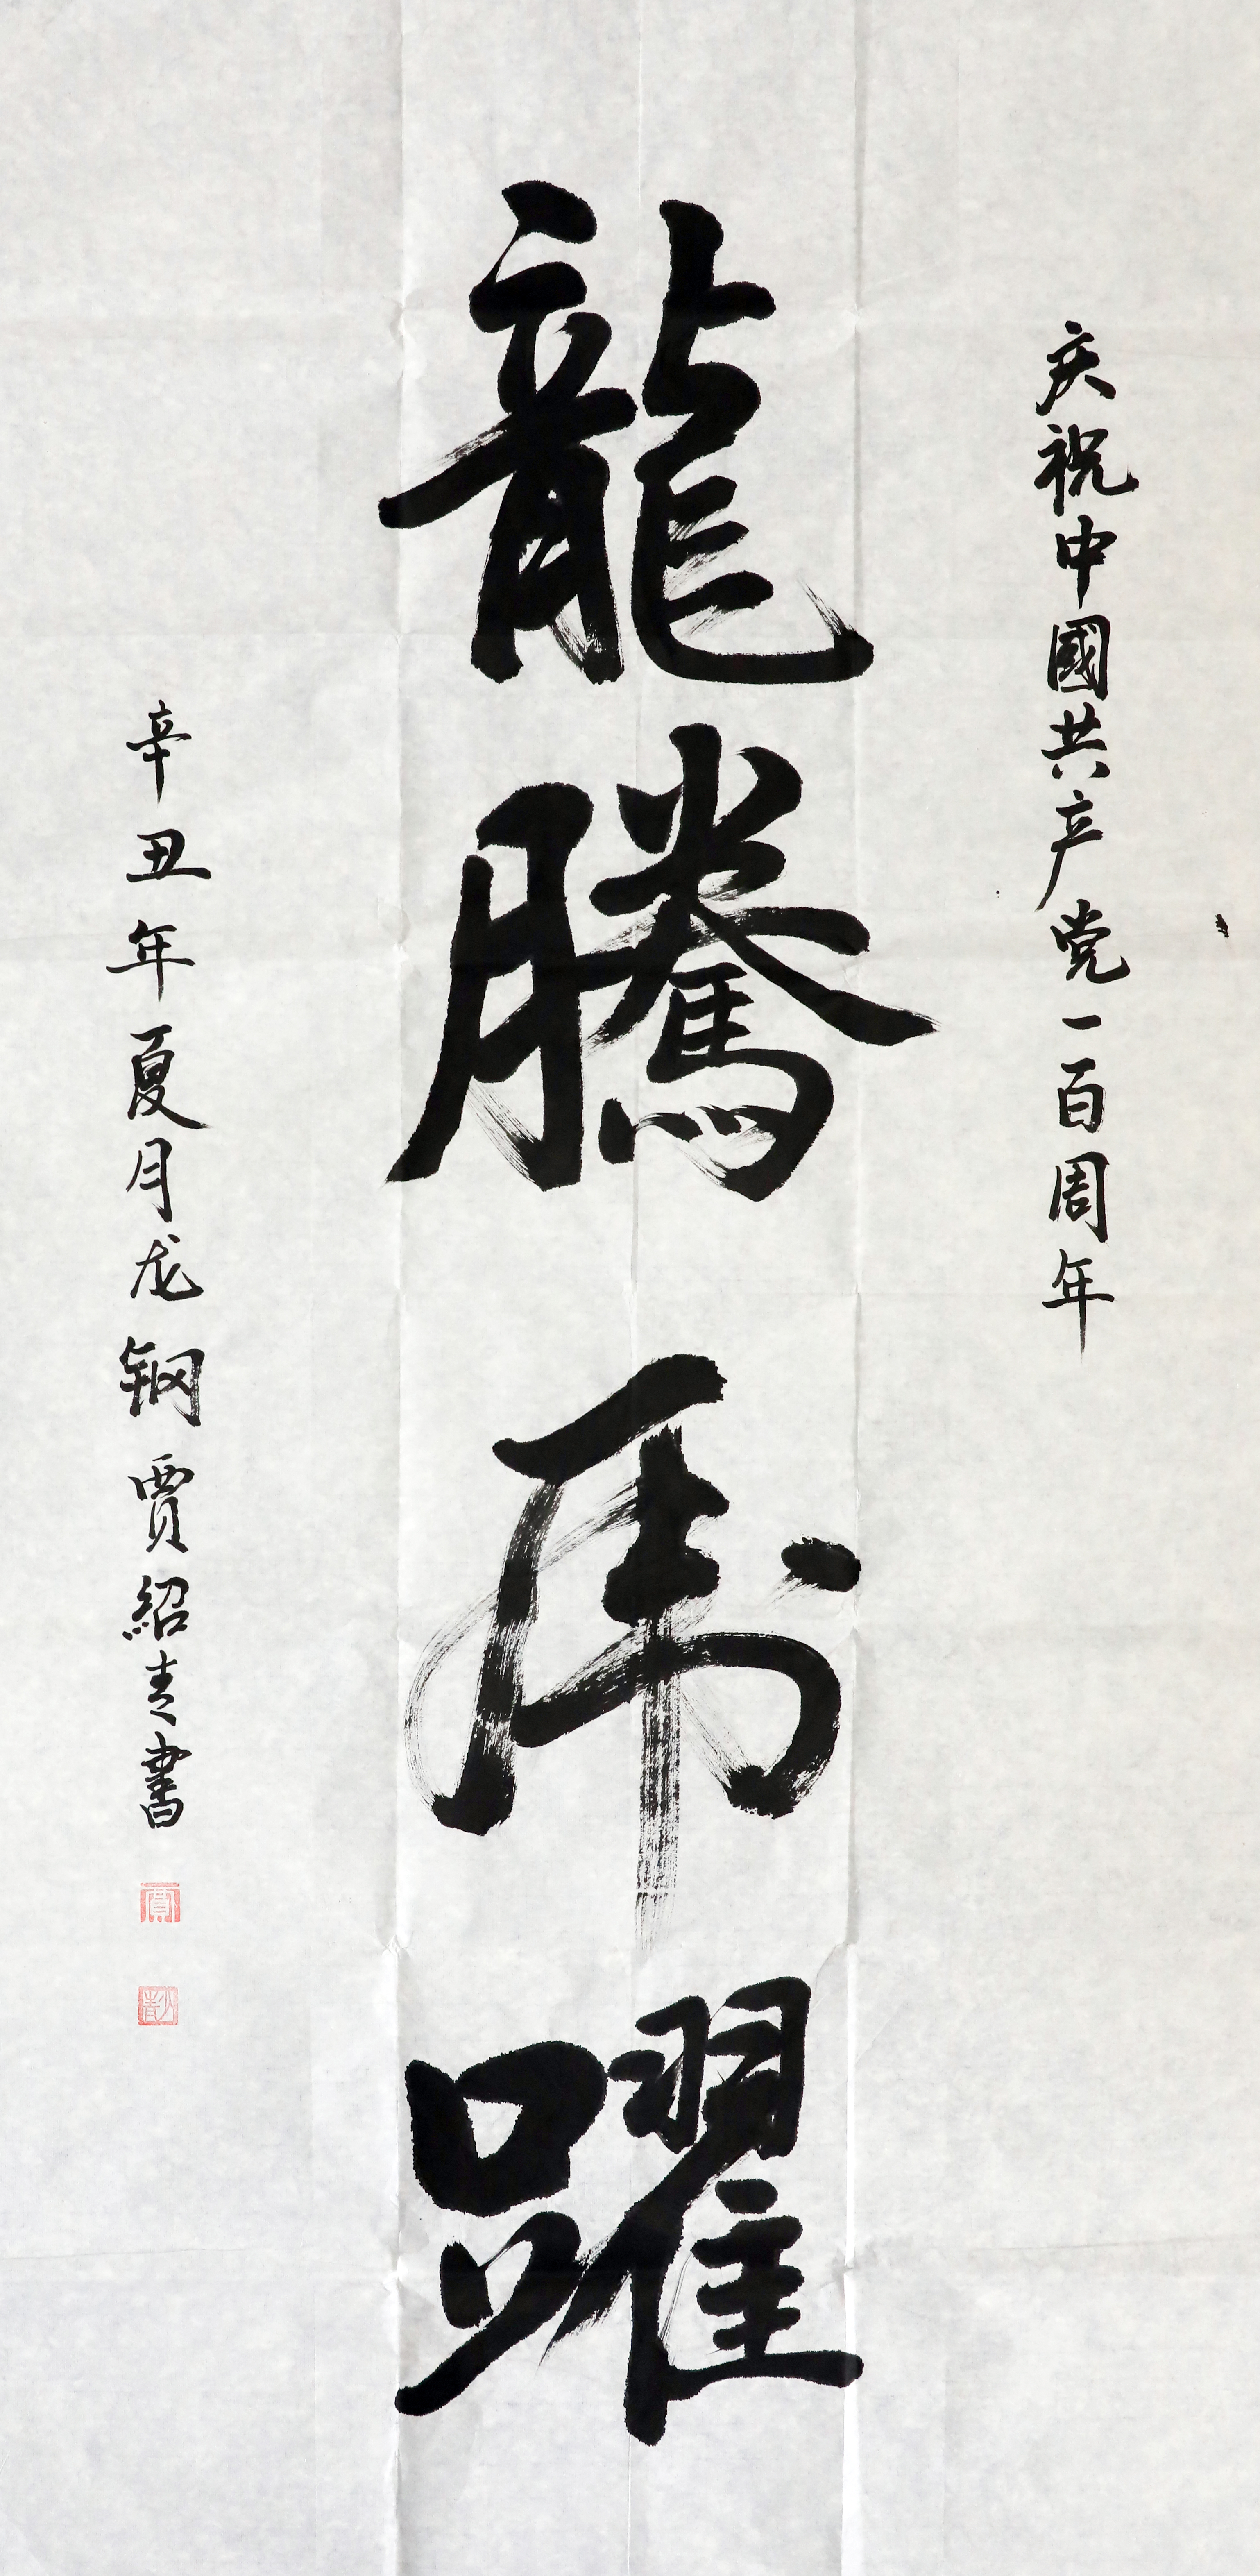 庆祝中國共产党一百周年
龍騰虎躍
辛丑年夏月龙钢賈紹青書
賈